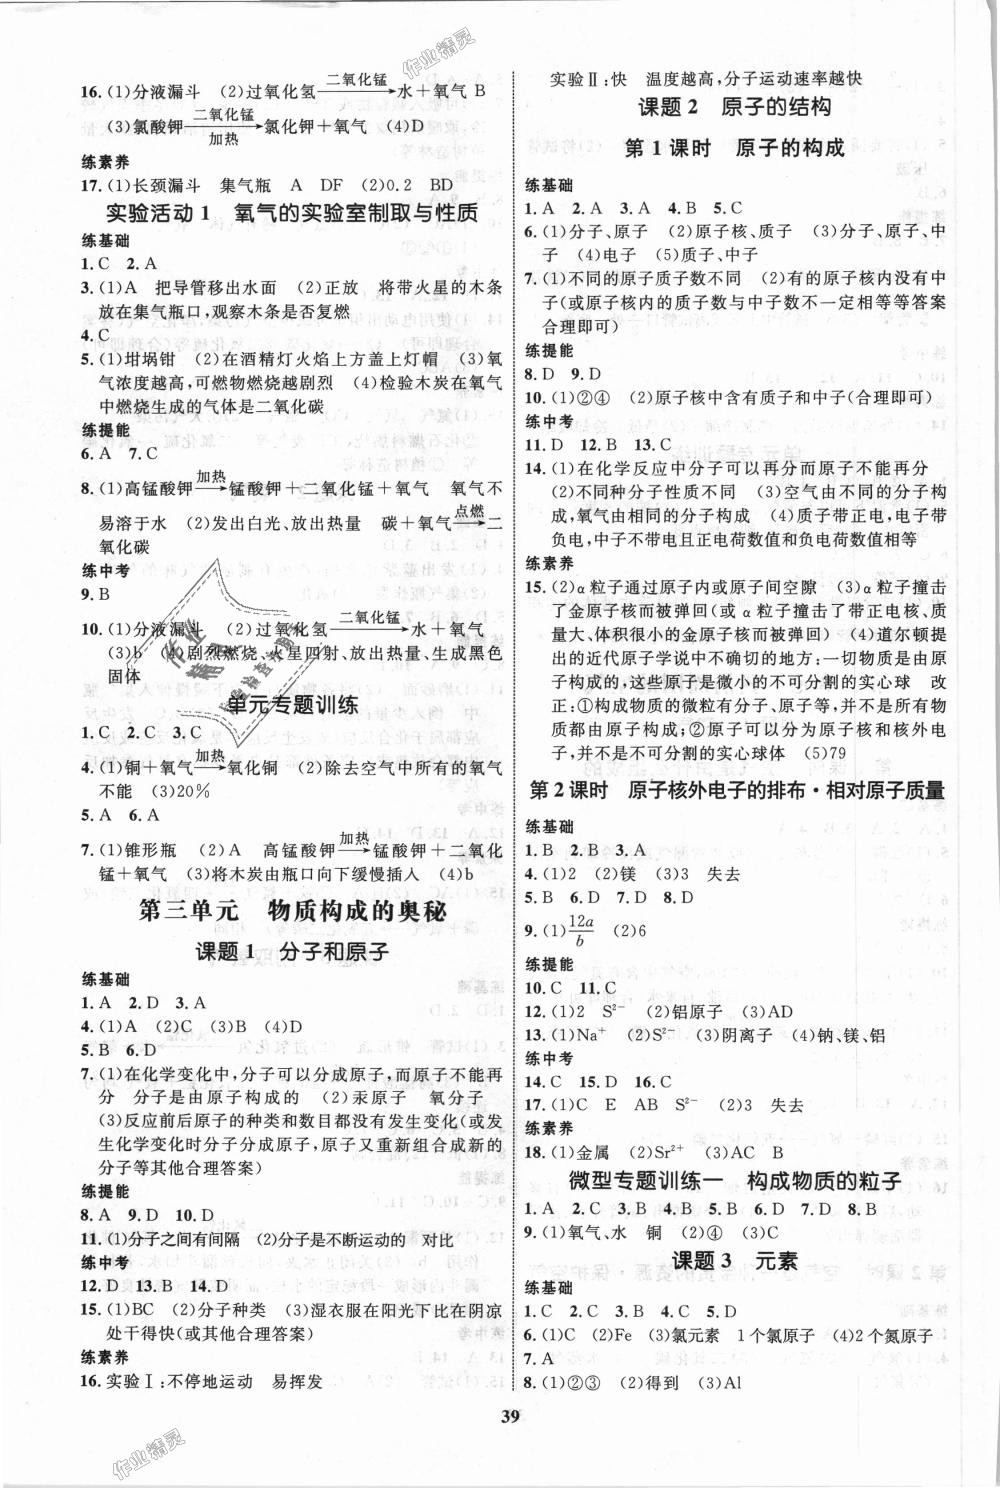 16.(1)分液漏斗　(2)过氧化氢 二氧化锰→ 水＋氧气　B
(3)氯酸钾 二氧化锰/加热→ 氯化钾＋氧气　(4)D
练素养
17.(1)长颈漏斗　集气瓶　A　DF　(2)0.2　BD
实验活动1　氧气的实验室制取与性质
练基础
1.C　2.A
3.(1)A　把导管移出水面　(2)正放　将带火星的木条
放在集气瓶口,观察木条是否复燃
4.C
5.(1)坩埚钳　(2)在酒精灯火焰上方盖上灯帽　(3)氧
气浓度越高,可燃物燃烧越剧烈　(4)检验木炭在氧气
中燃烧生成的气体是二氧化碳
练提能
6.A　7.C
8.(1)高锰酸钾 加热→ 锰酸钾＋二氧化锰＋氧气　氧气不
易溶于水　(2)发出白光、放出热量　碳＋氧气 点燃→ 二
氧化碳
练中考
9.B
10.(1)分液漏斗　(2)过氧化氢 二氧化锰→ 水＋氧气
(3)b　(4)剧烈燃烧、火星四射、放出热量、生成黑色
固体
单元专题训练
1.C　2.C　3.C
4.(1)铜＋氧气 加热→ 氧化铜　(2)除去空气中所有的氧气
不能　(3)20%
5.A　6.A
7.(1)锥形瓶　(2)A　高锰酸钾 加热→ 锰酸钾＋二氧化
锰＋氧气　(3)将木炭由瓶口向下缓慢插入　(4)b
第三单元　物质构成的奥秘
课题1　分子和原子
练基础
1.A　2.D　3.A
4.(1)A　(2)C　(3)B　(4)D
5.B　6.D
7.(1)在化学变化中,分子可以分成原子,而原子不能再
分　分子是由原子构成的　(2)汞原子　氧分子
(3)反应前后原子的种类和数目都没有发生变化(或
发生化学变化时分子分成原子,原子又重新组合成新的
分子等其他合理答案)
练提能
8.A　9.D　10.D
11.(1)分子之间有间隔　(2)分子是不断运动的　对比
练中考
12.D　13.B　14.D
15.(1)BC　(2)分子种类　(3)湿衣服在阳光下比在阴凉
处干得快(或其他合理答案)
练素养
16.实验Ⅰ:不停地运动　易挥发
实验Ⅱ:快　温度越高,分子运动速率越快
课题2　原子的结构
第1课时　原子的构成
练基础
1.A　2.A　3.A　4.B　5.C
6.(1)分子、原子　(2)原子核、质子　(3)分子、原子、中
子　(4)电子　(5)质子、中子
7.(1)不同的原子质子数不同　(2)有的原子核内没有中
子(或原子核内的质子数与中子数不一定相等等答案
合理即可)
练提能
8.D　9.D
10.(1)②④　(2)原子核中含有质子和中子(合理即可)
练中考
11.D　12.B　13.C
14.(1)在化学反应中分子可以再分而原子不能再分
(2)不同种分子性质不同　(3)空气由不同的分子构
成,氧气由相同的分子构成　(4)质子带正电,电子带
负电,中子不带电且正电荷数值和负电荷数值相等
练素养
15.(2)α粒子通过原子内或原子间空隙　(3)α粒子撞击
了金原子核而被弹回(或α粒子撞击了带正电核、质
量大、体积很小的金原子核而被弹回)　(4)道尔顿提
出的近代原子学说中不确切的地方:一切物质是由原
子构成的,这些原子是微小的不可分割的实心球　改
正:①构成物质的微粒有分子、原子等,并不是所有物
质都由原子构成;②原子可以分为原子核和核外电
子,并不是不可分割的实心球体　(5)79
第2课时　原子核外电子的排布·相对原子质量
练基础
1.B　2.B　3.A
4.(1)2　(2)镁　(3)3　失去
5.B　6.D　7.D　8.D
9.(1)12a/b　(2)6
练提能
10.C　11.C
12.(1)2　S²⁻　(2)铝原子　(3)AD
13.(1)Na⁺　(2)S²⁻　(3)阴离子　(4)钠、镁、铝
练中考
14.C　15.D　16.C
17.(1)C　E　AB　S²⁻　(2)3　失去
练素养
18.(1)金属　(2)Sr²⁺　(3)AC　B
微型专题训练一　构成物质的粒子
1.A　2.C　3.B　4.B　5.B　6.D　7.D　8.B
9.(1)氧气、水　铜　(2)④　(3)C
课题3　元素
练基础
1.C　2.C　3.C　4.C　5.D
6.(1)C　(2)Fe　(3)氯元素　1个氯原子　(4)2个氮原子
7.A
8.(1)②③　(2)得到　(3)Al
39
作业精灵
作业精灵